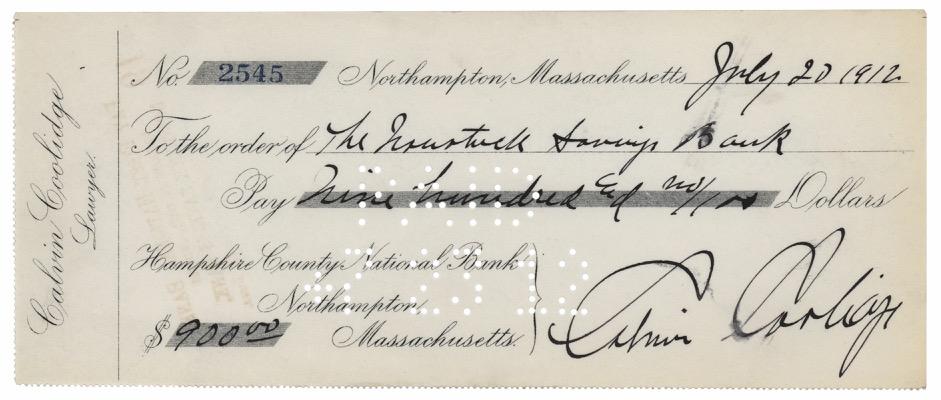 Calvin Coolidge
Lawyer.
No. 2545 Northampton, Massachusetts July 20 1912
To the order of The Nonotuck Savings Bank
Pay Nine hundred and no/100 Dollars
Hampshire County National Bank
Northampton,
Massachusetts.
$900 00
Calvin Coolidge
PAID